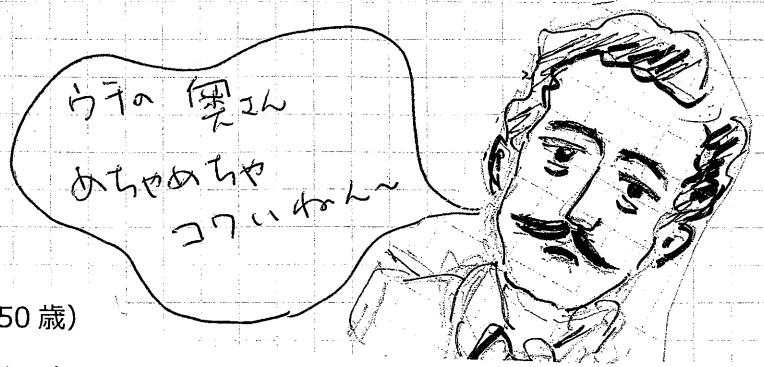 ウチの 奥さん
めちゃめちゃ
コワいねん〜
50 歳)